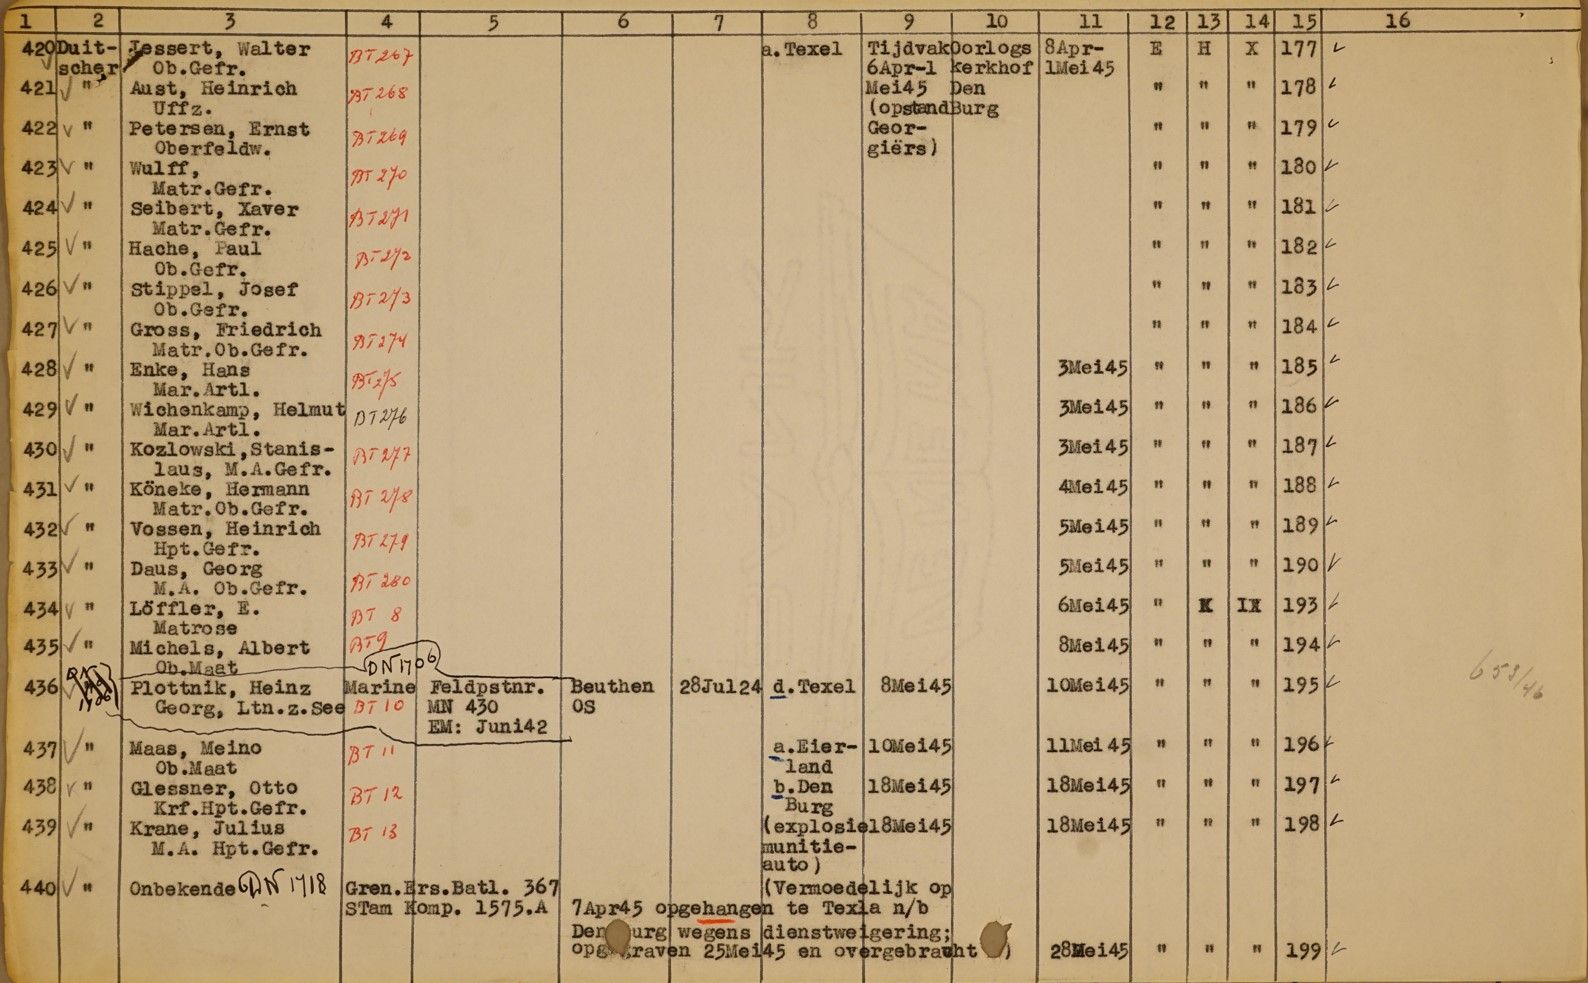 1 2 3 4 5 6 7 8 9 10 11 12 13 14 15 16
420 Duit- Jessert, Walter BT 267 a.Texel Tijdvak Oorlogs 8Apr- E H X 177
scher Ob.Gefr. 6Apr-1 kerkhof 1Mei45
421 " Aust, Heinrich BT 268 Mei45 Den " " " 178
Uffz. (opstand Burg
422 " Petersen, Ernst BT 269 Geor- " " " 179
Oberfeldw. giërs)
423 " Wulff, BT 270 " " " 180
Matr.Gefr.
424 " Seibert, Xaver BT 271 " " " 181
Matr.Gefr.
425 " Hache, Paul BT 272 " " " 182
Ob.Gefr.
426 " Stippel, Josef BT 273 " " " 183
Ob.Gefr.
427 " Gross, Friedrich BT 274 " " " 184
Matr.Ob.Gefr.
428 " Enke, Hans BT 275 3Mei45 " " " 185
Mar.Artl.
429 " Wichenkamp, Helmut BT 276 3Mei45 " " " 186
Mar.Artl.
430 " Kozlowski,Stanis- BT 277 3Mei45 " " " 187
laus, M.A.Gefr.
431 " Köneke, Hermann BT 278 4Mei45 " " " 188
Matr.Ob.Gefr.
432 " Vossen, Heinrich BT 279 5Mei45 " " " 189
Hpt.Gefr.
433 " Daus, Georg BT 280 5Mei45 " " " 190
M.A. Ob.Gefr.
434 " Löffler, E. BT 8 6Mei45 " K IX 193
Matrose
435 " Michels, Albert BT 9 8Mei45 " " " 194
Ob.Maat DN 1706
436 Plottnik, Heinz Marine Feldpstnr. Beuthen 28Jul24 d.Texel 8Mei45 10Mei45 " " " 195 653/46
Georg, Ltn.z.See BT 10 MN 430 OS
EM: Juni42
437 " Maas, Meino BT 11 a.Eier- 10Mei45 11Mei45 " " " 196
Ob.Maat land
438 " Glessner, Otto BT 12 b.Den 18Mei45 18Mei45 " " " 197
Krf.Hpt.Gefr. Burg
439 " Krane, Julius BT 13 (explosie 18Mei45 18Mei45 " " " 198
M.A. Hpt.Gefr. munitie-
auto)
440 " Onbekende DN 1718 Gren.Ers.Batl. 367 (Vermoedelijk op
STam Komp. 1575.A 7Apr45 opgehangen te Texla n/b
Den urg wegens dienstweigering;
raven 25Mei45 en overgebracht ) 28Mei45 " " " 199